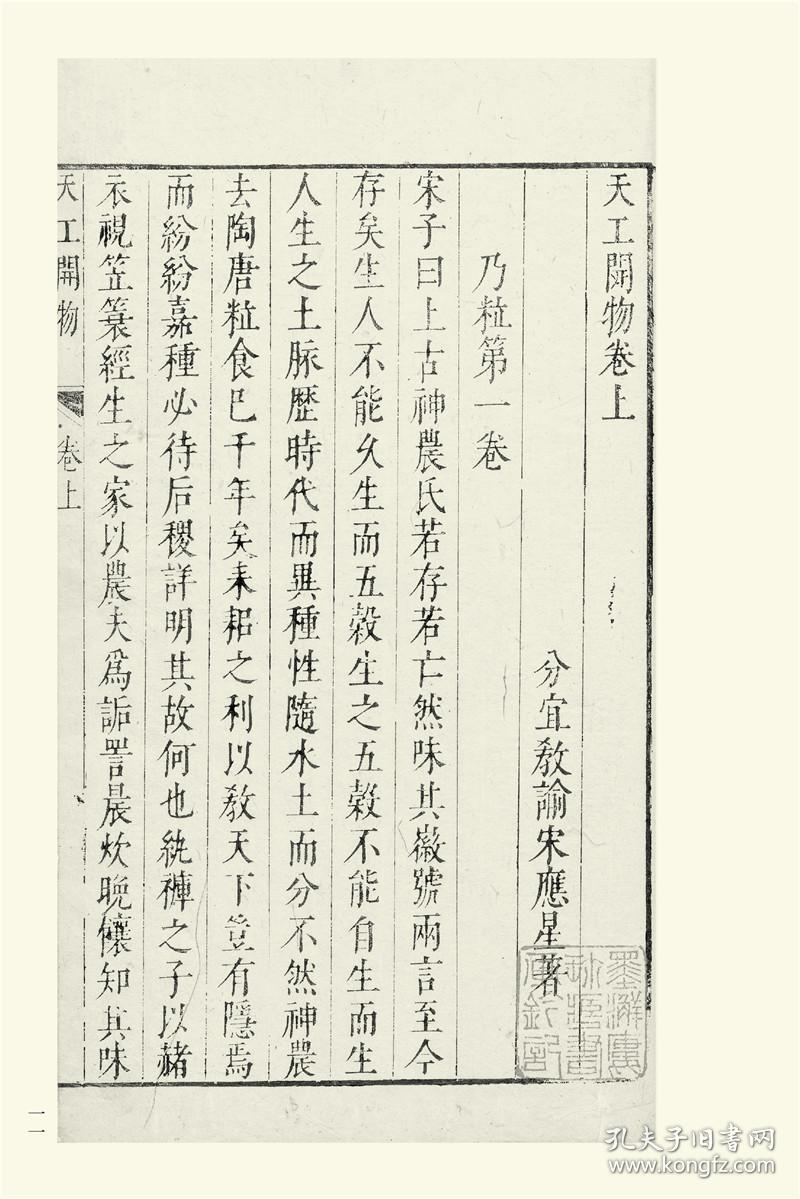 天工開物卷上
分宜教諭宋應星著
乃粒第一卷
宋子曰上古神農氏若存若亡然味其徽號兩言至今
存矣生人不能久生而五穀生之五穀不能自生而生
人生之土脉歷時代而異種性隨水土而分不然神農
去陶唐粒食已千年矣耒耜之利以教天下豈有隱焉
而紛紛嘉種必待后稷詳明其故何也紈褲之子以赭
衣視笠簑經生之家以農夫為詬詈晨炊晚饟知其味
天工開物 卷上
一一
孔夫子旧书网
www.kongfz.com